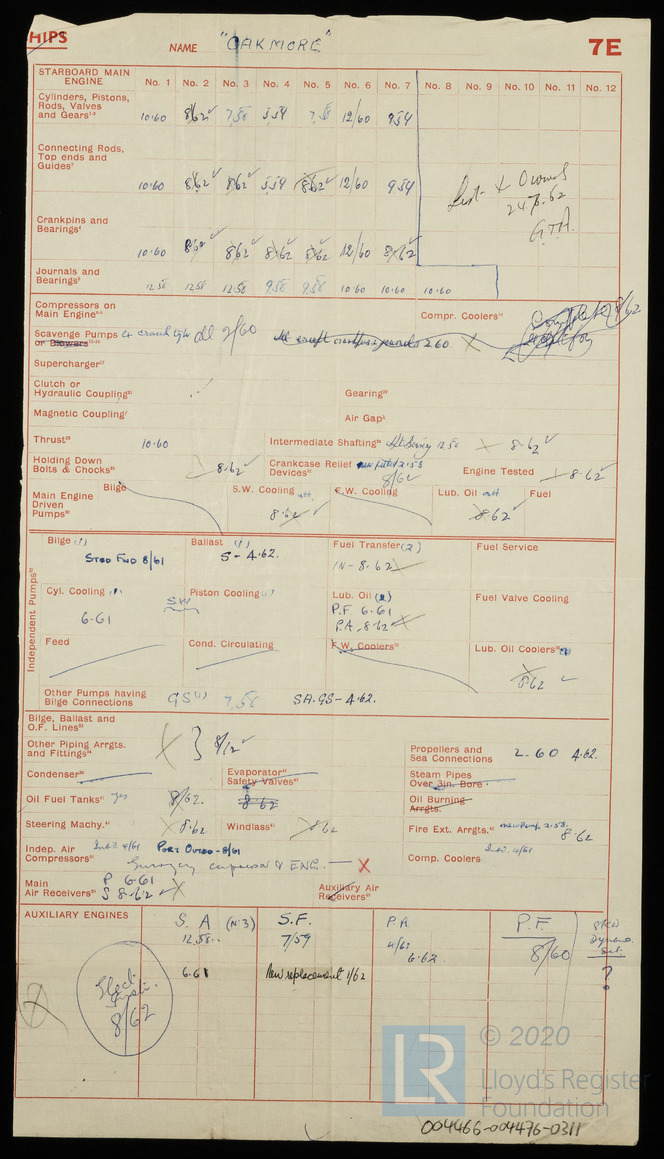 HIPS
NAME "OAKMORE" 7E
STARBOARD MAIN ENGINE No. 1 No. 2 No. 3 No. 4 No. 5 No. 6 No. 7 No. 8 No. 9 No. 10 No. 11 No. 12
Cylinders, Pistons,
Rods, Valves
and Gears 10·60 8/62 7,58 5,59 7,58 12/60 9,59
Connecting Rods,
Top ends and
Guides 10·60 8,62 8/62 5,59 8/62 12/60 9,59
List to Owners
24.8.62
Crankpins and
Bearings 10·60 8/62 8/62 8/62 8/62 12/60 8/62
Journals and
Bearings 12 58 12 58 12.58 9.58 9.58 10·60 10.60 10·60
Compressors on
Main Engine Compr. Coolers
8/62
Scavenge Pumps
or Blowers all 2/60
Supercharger
Clutch or
Hydraulic Coupling Gearing
Magnetic Coupling Air Gap
Thrust 10·60 Intermediate Shafting 8·62
Holding Down
Bolts & Chocks 8·62 Crankcase Relief
Devices new fitted 2·58
8/62 Engine Tested 8·62
Main Engine
Driven
Pumps Bilge S.W. Cooling att. F.W. Cooling Lub. Oil att Fuel
8·62 8·62
Independent Pumps
Bilge (1) Ballast (1) Fuel Transfer (2) Fuel Service
STBD FWD 8/61 S - 4.62. IN - 8·62
Cyl. Cooling (1) SW Piston Cooling Lub. Oil (2) Fuel Valve Cooling
6·61 P.F 6·61
P.A. 8·62
Feed Cond. Circulating F.W. Coolers Lub. Oil Coolers
8·62
Other Pumps having
Bilge Connections GS (1) 7,58 SA.GS - 4.62.
Bilge, Ballast and
O.F. Lines
Other Piping Arrgts.
and Fittings 8/62 Propellers and
Sea Connections 2.60 4.62.
Condenser Evaporator
Safety Valves Steam Pipes
Over 3in. Bore
Oil Fuel Tanks yes 8/62. 8 62 Oil Burning
Arrgts.
Steering Machy. 8·62 Windlass 8/62 Fire Ext. Arrgts. new Pump 2.58. 8·62
Indep. Air
Compressors Int'd. 4/61 PORT OUTBD - 8/61 Comp. Coolers Int'd. 4/61
Emergency compressor & ENG. X
Main
Air Receivers P 6·61
S 8·62 Auxiliary Air
Receivers
AUXILIARY ENGINES S. A (No 3) S.F. P.A. P.F.
12.58.. 7/59 4/61 8/60
6·62.
Dynamo
Set.
?
6·61 New replacement 1/62
8/62
LR © 2020
Lloyd's Register
Foundation
004466-004476-0311